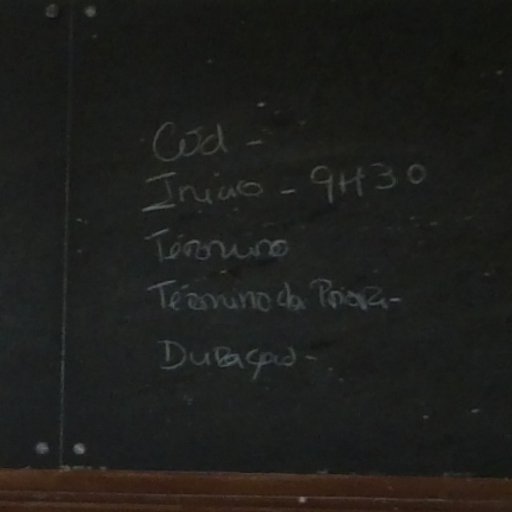 Cód -
Início - 9H30
Término
Término da Prova -
Duração -